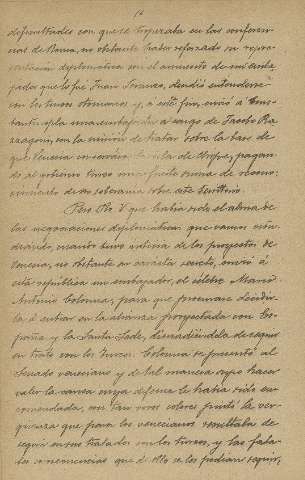 14
dificultades con que se tropezaba en las conferen-
cias de Roma, no obstante haber reforzado su repre-
sentación diplomatica con el aumento de un emba-
jador que lo fué Juan Soranzo, decidió entenderse
con los turcos otomanos y, a este fin, envió a Cons-
tantinopla una embajada a cargo de Jacobo Ra-
gazzoni, con la misión de tratar sobre la base de
que Venecia la isla de Chipre, pagan-
do al gobierno turco una fuerte suma de
de su soberania sobre este territorio.
Pero Pio V que habia sido el alma de
las negociaciones diplomaticas que vamos estu-
diando, cuando tuvo noticia de los proyectos de
Venecia, no obstante su caracter secreto, envió a
esta república un embajador, el célebre Marco
Antonio Colonna, para que procurase decidir-
la á entrar en la alianza proyectada con Es-
paña y la Santa Sede, disuadiéndola de seguir
en trato con los turcos. Colonna se presentó al
Senado veneciano y de tal manera supo hacer
valer la causa cuya defensa le habia sido en-
comendada, con tan vivos colores pintó la ver-
güenza que para los venecianos resultaba de
seguir en sus tratados con los turcos, y las fata-
les consecuencias que de ello se les podian seguir,